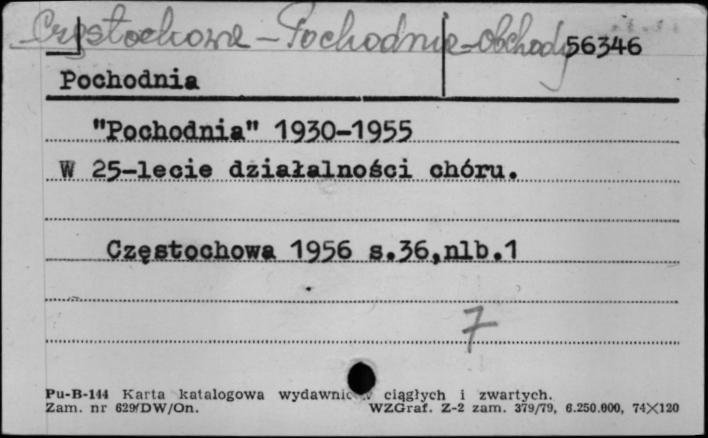 Częstochowa – Pochodnia – obchody
56346
Pochodnia
"Pochodnia" 1930-1955
W 25-lecie działalności chóru.
Częstochowa 1956 s.36,nlb.1
7
Pu-B-144 Karta katalogowa wydawnic w ciągłych i zwartych.
Zam. nr 629/DW/On. WZGraf. Z-2 zam. 379/79, 6.250.000, 74×120